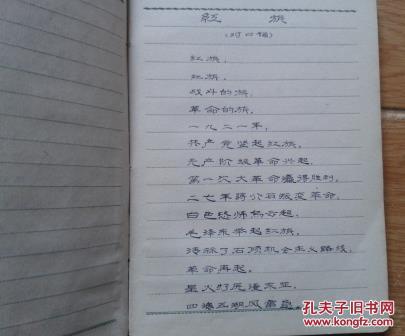 红旗
(对口词)
红旗,
红旗,
战斗的旗,
革命的旗,
一九二一年,
共产党竖起红旗,
无产阶级革命兴起,
第一次大革命赢得胜利,
二七年蒋介石叛变革命,
白色恐怖
毛泽东举起红旗,
清除了右倾机会主义路线,
革命再起,
星火燎原
四海五湖风雷急,
孔夫子旧书网